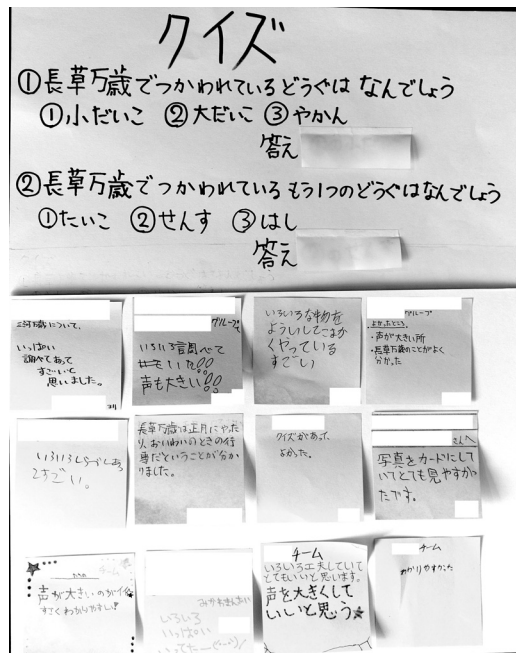 クイズ
①長草万歳でつかわれているどうぐは なんでしょう
①小だいこ ②大だいこ ③やかん
答え
②長草万歳でつかわれているもう1つのどうぐはなんでしょう
①たいこ ②せんす ③はし
答え
三河万歳について、
いっぱい
調べてあって
すごいと
思いました。
より
グループ
いろいろ調べて
声も大きい!!
いろいろな物を
よういしてこまか
くやっている
すごい
グループ
よかったところ
・声が大きい所
・長草万歳のことがよく
分かった
すごい。
長草万歳は正月にやった
り、おいわいのときの行
事だということが分か
りました。
クイズがあって、
よかった。
さんへ
写真をカードにして
いてとても見やすかっ
たです。
声が大きいのが
すごくわかりやすい!
いろいろ
いっぱい
チーム
いろいろ工夫していて
とてもいいと思います。
声を大きくして
いいと思う
チーム
わかりやすかった